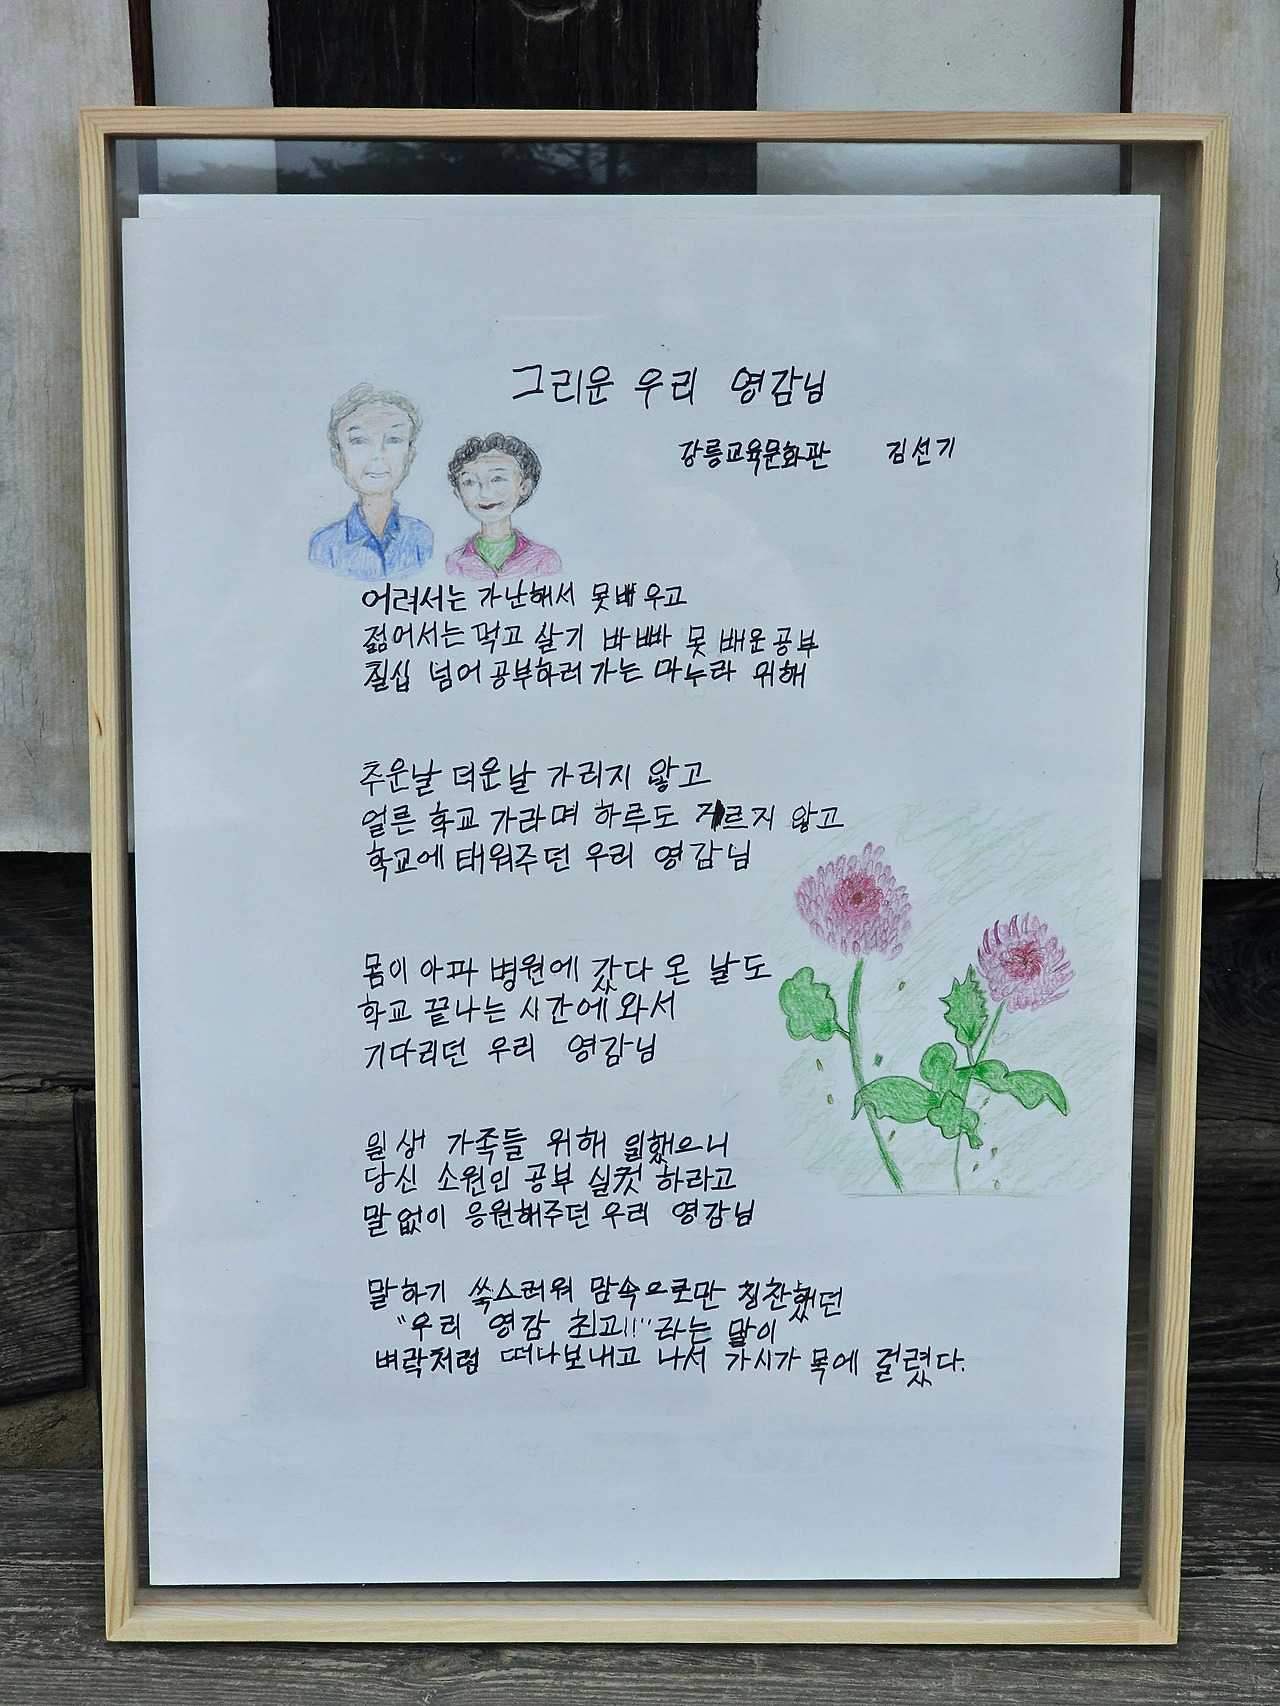 그리운 우리 영감님
강릉교육문화관 김선기
어려서는 가난해서 못배우고
젊어서는 먹고 살기 바빠 못 배운공부
칠십 넘어 공부하러 가는 마누라 위해
추운날 더운날 가리지 않고
얼른 학교 가라며 하루도 거르지 않고
학교에 태워주던 우리 영감님
몸이 아파 병원에 갔다 온 날도
학교 끝나는 시간에 와서
기다리던 우리 영감님
일생 가족들 위해 일했으니
당신 소원인 공부 실컷 하라고
말없이 응원해주던 우리 영감님
말하기 쑥스러워 맘속으로만 칭찬했던
"우리 영감 최고!!"라는 말이
벼락처럼 떠나보내고 나서 가시가 목에 걸렸다.